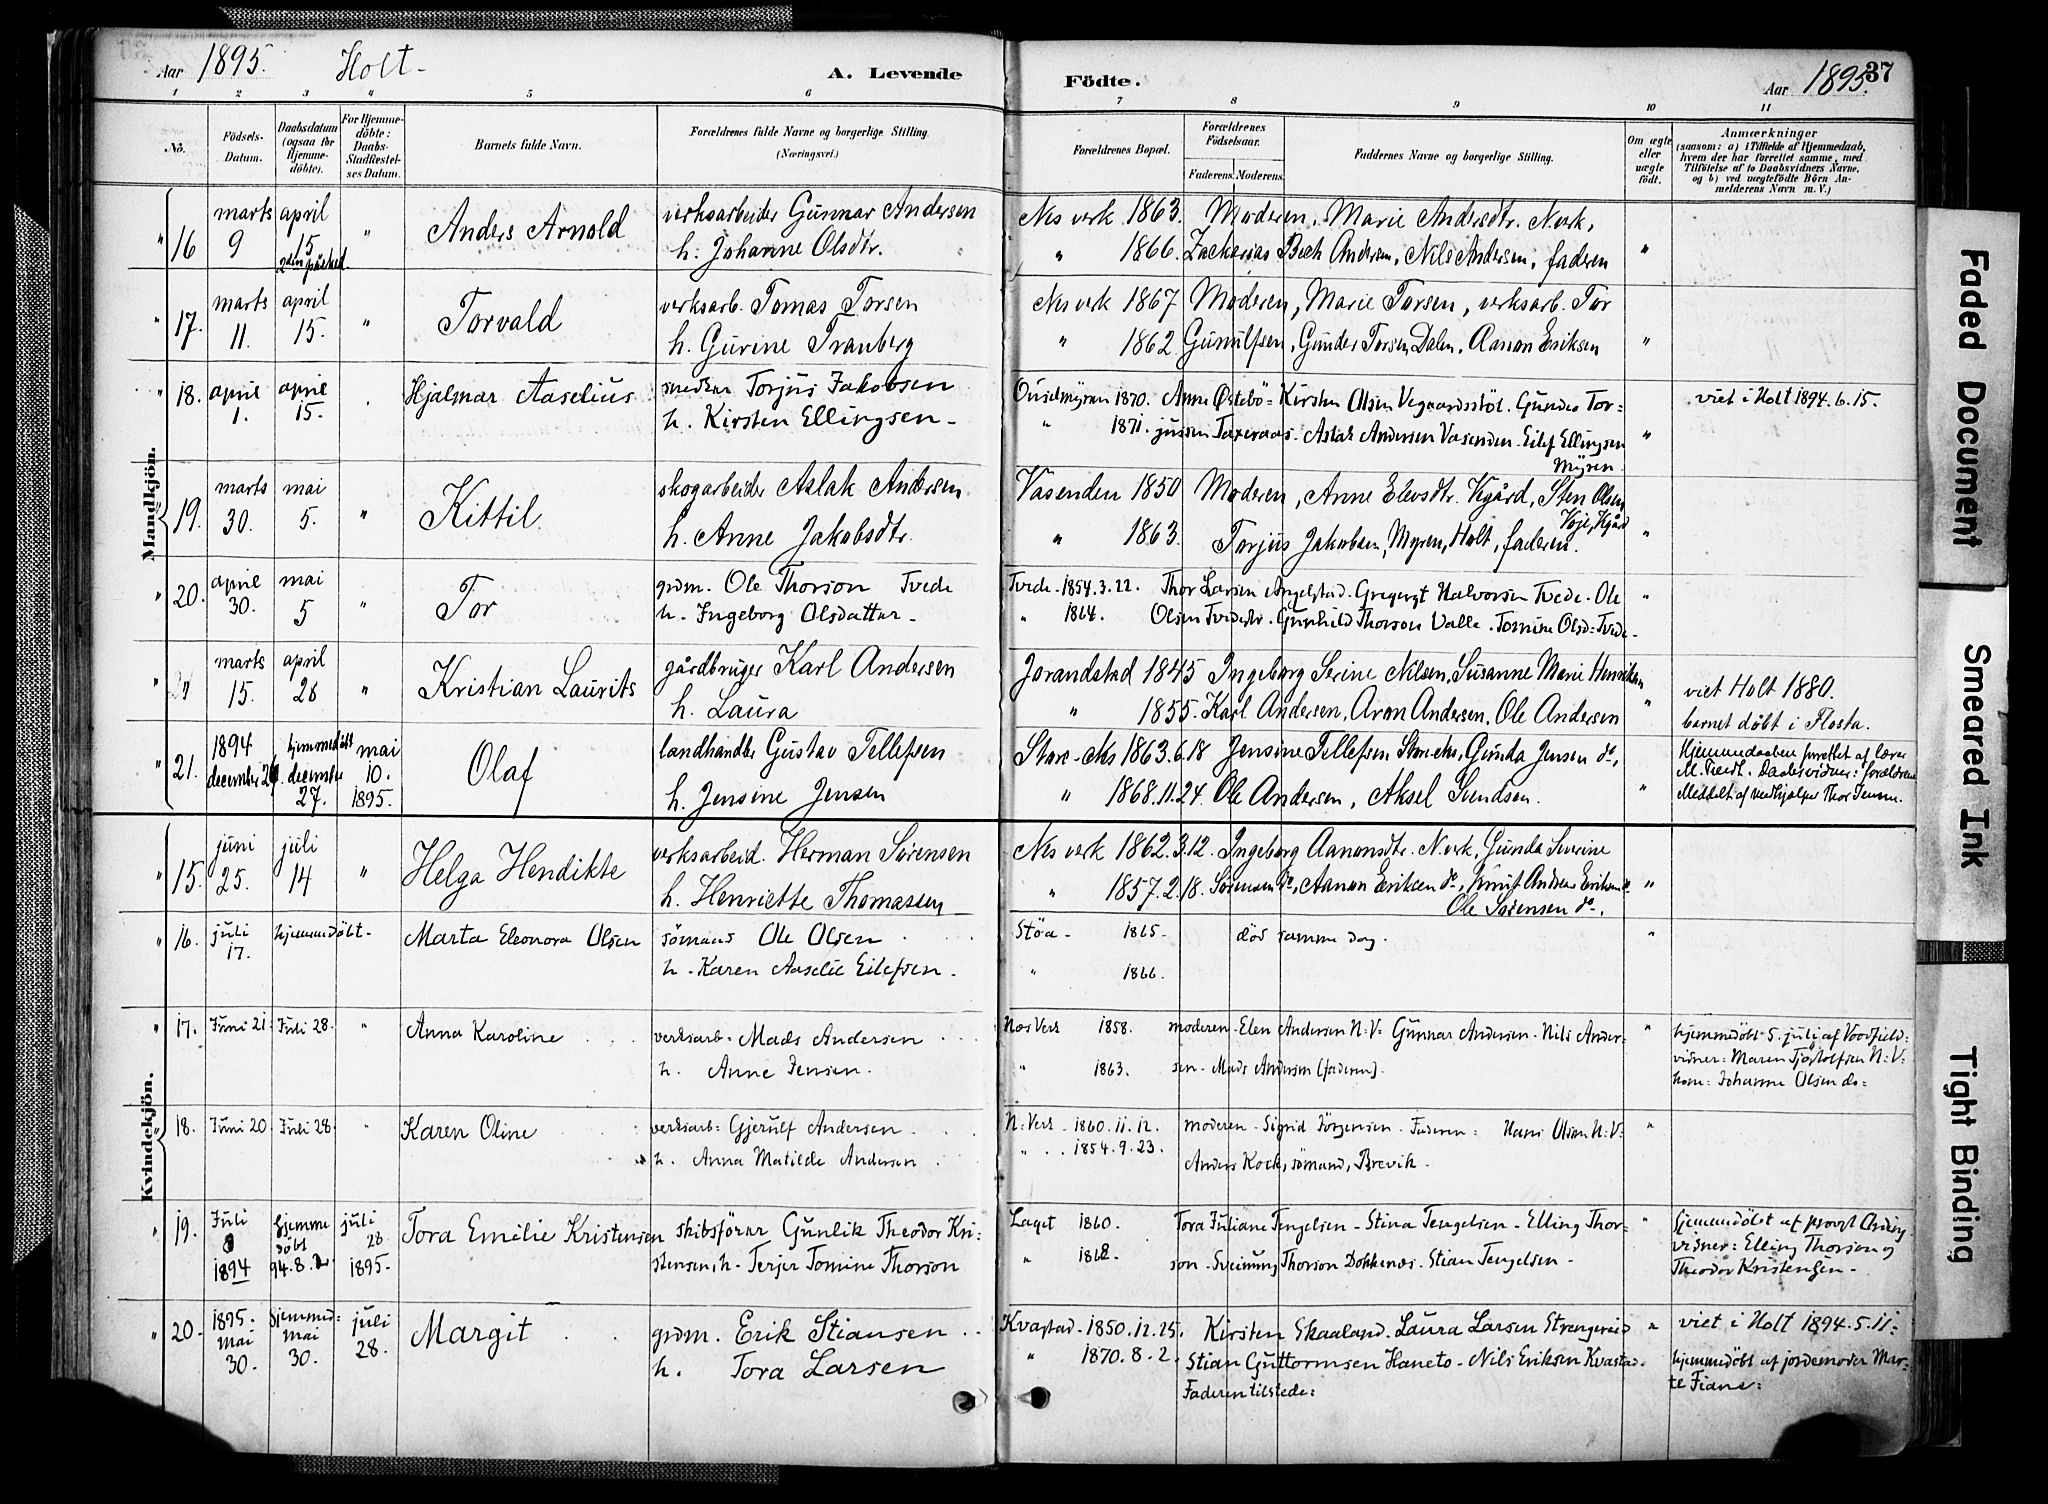 Aar 1895. Holt - A. Levende Födte. Aar 1895. 37
1 2 3 4 5 6 7 8 9 10 11
No. Födsels-Datum. Daabsdatum (ogsaa for Hjemme-döbte). For Hjemme-döbte: Daabs-Stadfæstel-ses Datum. Barnets fulde Navn. Forældrenes fulde Navne og borgerlige Stilling. (Næringsvei.) Forældrenes Bopæl. Forældrenes Födselsaar. Faderens. Moderens. Faddernes Navne og borgerlige Stilling. Om ægte eller uægte födt. Anmærkninger (saasom: a) i Tilfælde af Hjemmedaab, hvem der har forrettet samme, med Tilföielse af to Daabsvidners Navne, og b) ved uægtefödte Börn An-melderens Navn m. V.)
Mandkjön.
" 16 marts 9 april 15 2den påsked. " Anders Arnold verksarbeider Gunnar Andersen Nes verk 1863. Moderen, Marie Andersdtr. N.verk,
h. Johanne Olsdtr. " 1866. Zackarias Bech Andersen, Nils Andersen, faderen "
" 17. marts 11. april 15. " Torvald verksarb. Tomas Torsen Nes verk 1867 Moderen, Marie Torsen, verksarb. Tor
h. Gurine Tranberg " 1862 Gunulfsen, Gunder Torsen, Dalen, Aanon Eriksen "
" 18. april 1. april 15. Hjalmar Aaselius smeden Torjus Jakobsen 1870. Anne Østebö = Kirsten Olsen Vegaardsstöl. Gunder Tor= viet i Holt 1894.6.15.
h. Kirsten Ellingsen - " 1871. jussen - Aslak Andersen Vasenden - Eilef Ellingsen "
Myren.
19. marts 30. mai 5. " Kittil skogarbeider Aslak Andersen Vasenden 1850 Moderen, Anne Elevsdtr. Vegård, Sten Olsen
Voje, Vgård
h. Anne Jakobsdtr. " 1863. Torjus Jakobsen, Myren, Holt, faderen. "
" 20. april 30. mai 5 " Tor grdm. Ole Thorson Tvede Tvede - 1854.3.22. Thor Larsen Angelstad - Gregert Halvorsen Tvede - Ole "
h. Ingeborg Olsdatter - " 1864. Olsen - Gunhild Thorson Valle - Tomine Olsd= Tvede -
" marts 15. april 28 " Kristian Laurits gårdbruger Karl Andersen Jorandstad 1845 Ingeborg Serine Nilsen, Susanne Marie Henriksen viet Holt 1880.
h. Laura " 1855. Karl Andersen, Aron Andersen, Ole Andersen " barnet döbt i Flosta.
" 21. 1894 december 26. hjemmedöbt december 27. mai 10. 1895. Olaf landhandler Gustav Tellefsen 1863.6.18 Jensine Tellefsen, Gunda Jensen do, Hjemmedaaben forrettet af lærer
M. Daabsvidner: forældrene
h. Jensine Jensen " 1868.11.24. Ole Andersen, Aksel Svendsen. " Meddelt af Thor Jensen.
Kvindekjön.
" 15. juni 25. juli 14 " Helga Hendikte verksarbeid. Herman Sörensen Nes verk 1862.3.12. Ingeborg Aanonsdtr. N.verk, Gunda Severine
h. Henriette Thomassen " 1857.2.18. Sörensen do, Aanon Eriksen do, Knut Andreas Eriksen do. "
Ole Sörensen do.
" 16. juli 17. hjemmedöbt - Marta Eleonora Olsen sömand Ole Olsen Stöa - 1865. död samme dag. "
h. Karen Aaselie Eilefsen - " 1866.
" 17. Juni 21. Juli 28. " Anna Karoline verksarb= Mads Andersen Nes Verk 1858. moderen - Elen Andersen N:V= Gunnar Andersen - Nils Ander= " hjemmedöbt 5. juli af
h. Anne Jensen. " 1863. sen - Mads Andersen (faderen). vidner= Maren Tjöstolfsen N:V=
Johanne Olsen do=
" 18. Juni 20 Juli 28 " Karen Oline verksarb= Gjerulf Andersen N: Verk 1860.11.12. moderen - Sigrid Jörgensen - Faderen= Hans Olsen N:V= "
h. Anna Matilde Andersen " 1854.9.23. Anders Kock, sömand, Brevik.
" 19. Juli 8 1894 hjemmedöbt 94.8. juli 28 1895. Tora Emilie Kristensen skibsförer Gunlik Theodor Kri= Laget 1860. Tora Juliane Tengelsen - Stina Tengelsen - Elling Thor= " hjemmedöbt af provst
vidner= Elling Thorson og
stensen, h - Terjer Tomine Thorson " 1862. son - Sveinung Thorson Dokkenæs - Stian Tengelsen - Theodor Kristensen -
" 20 - 1895. mai 30. hjemmed= mai 30. juli 28. Margit grdm. Erik Stiansen Kvastad - 1850.12.25. Kirsten Skaaland. Laura Larsen Strengereid " viet i Holt 1894.5.11=
h. Tora Larsen " 1870.8.2. Stian Guttormsen Haneto - Nils Eriksen Kvastad. hjemmedöbt af jordemoder Mar=
Faderen tilstede= te Fiane=
Faded Document
Smeared Ink
Tight Binding